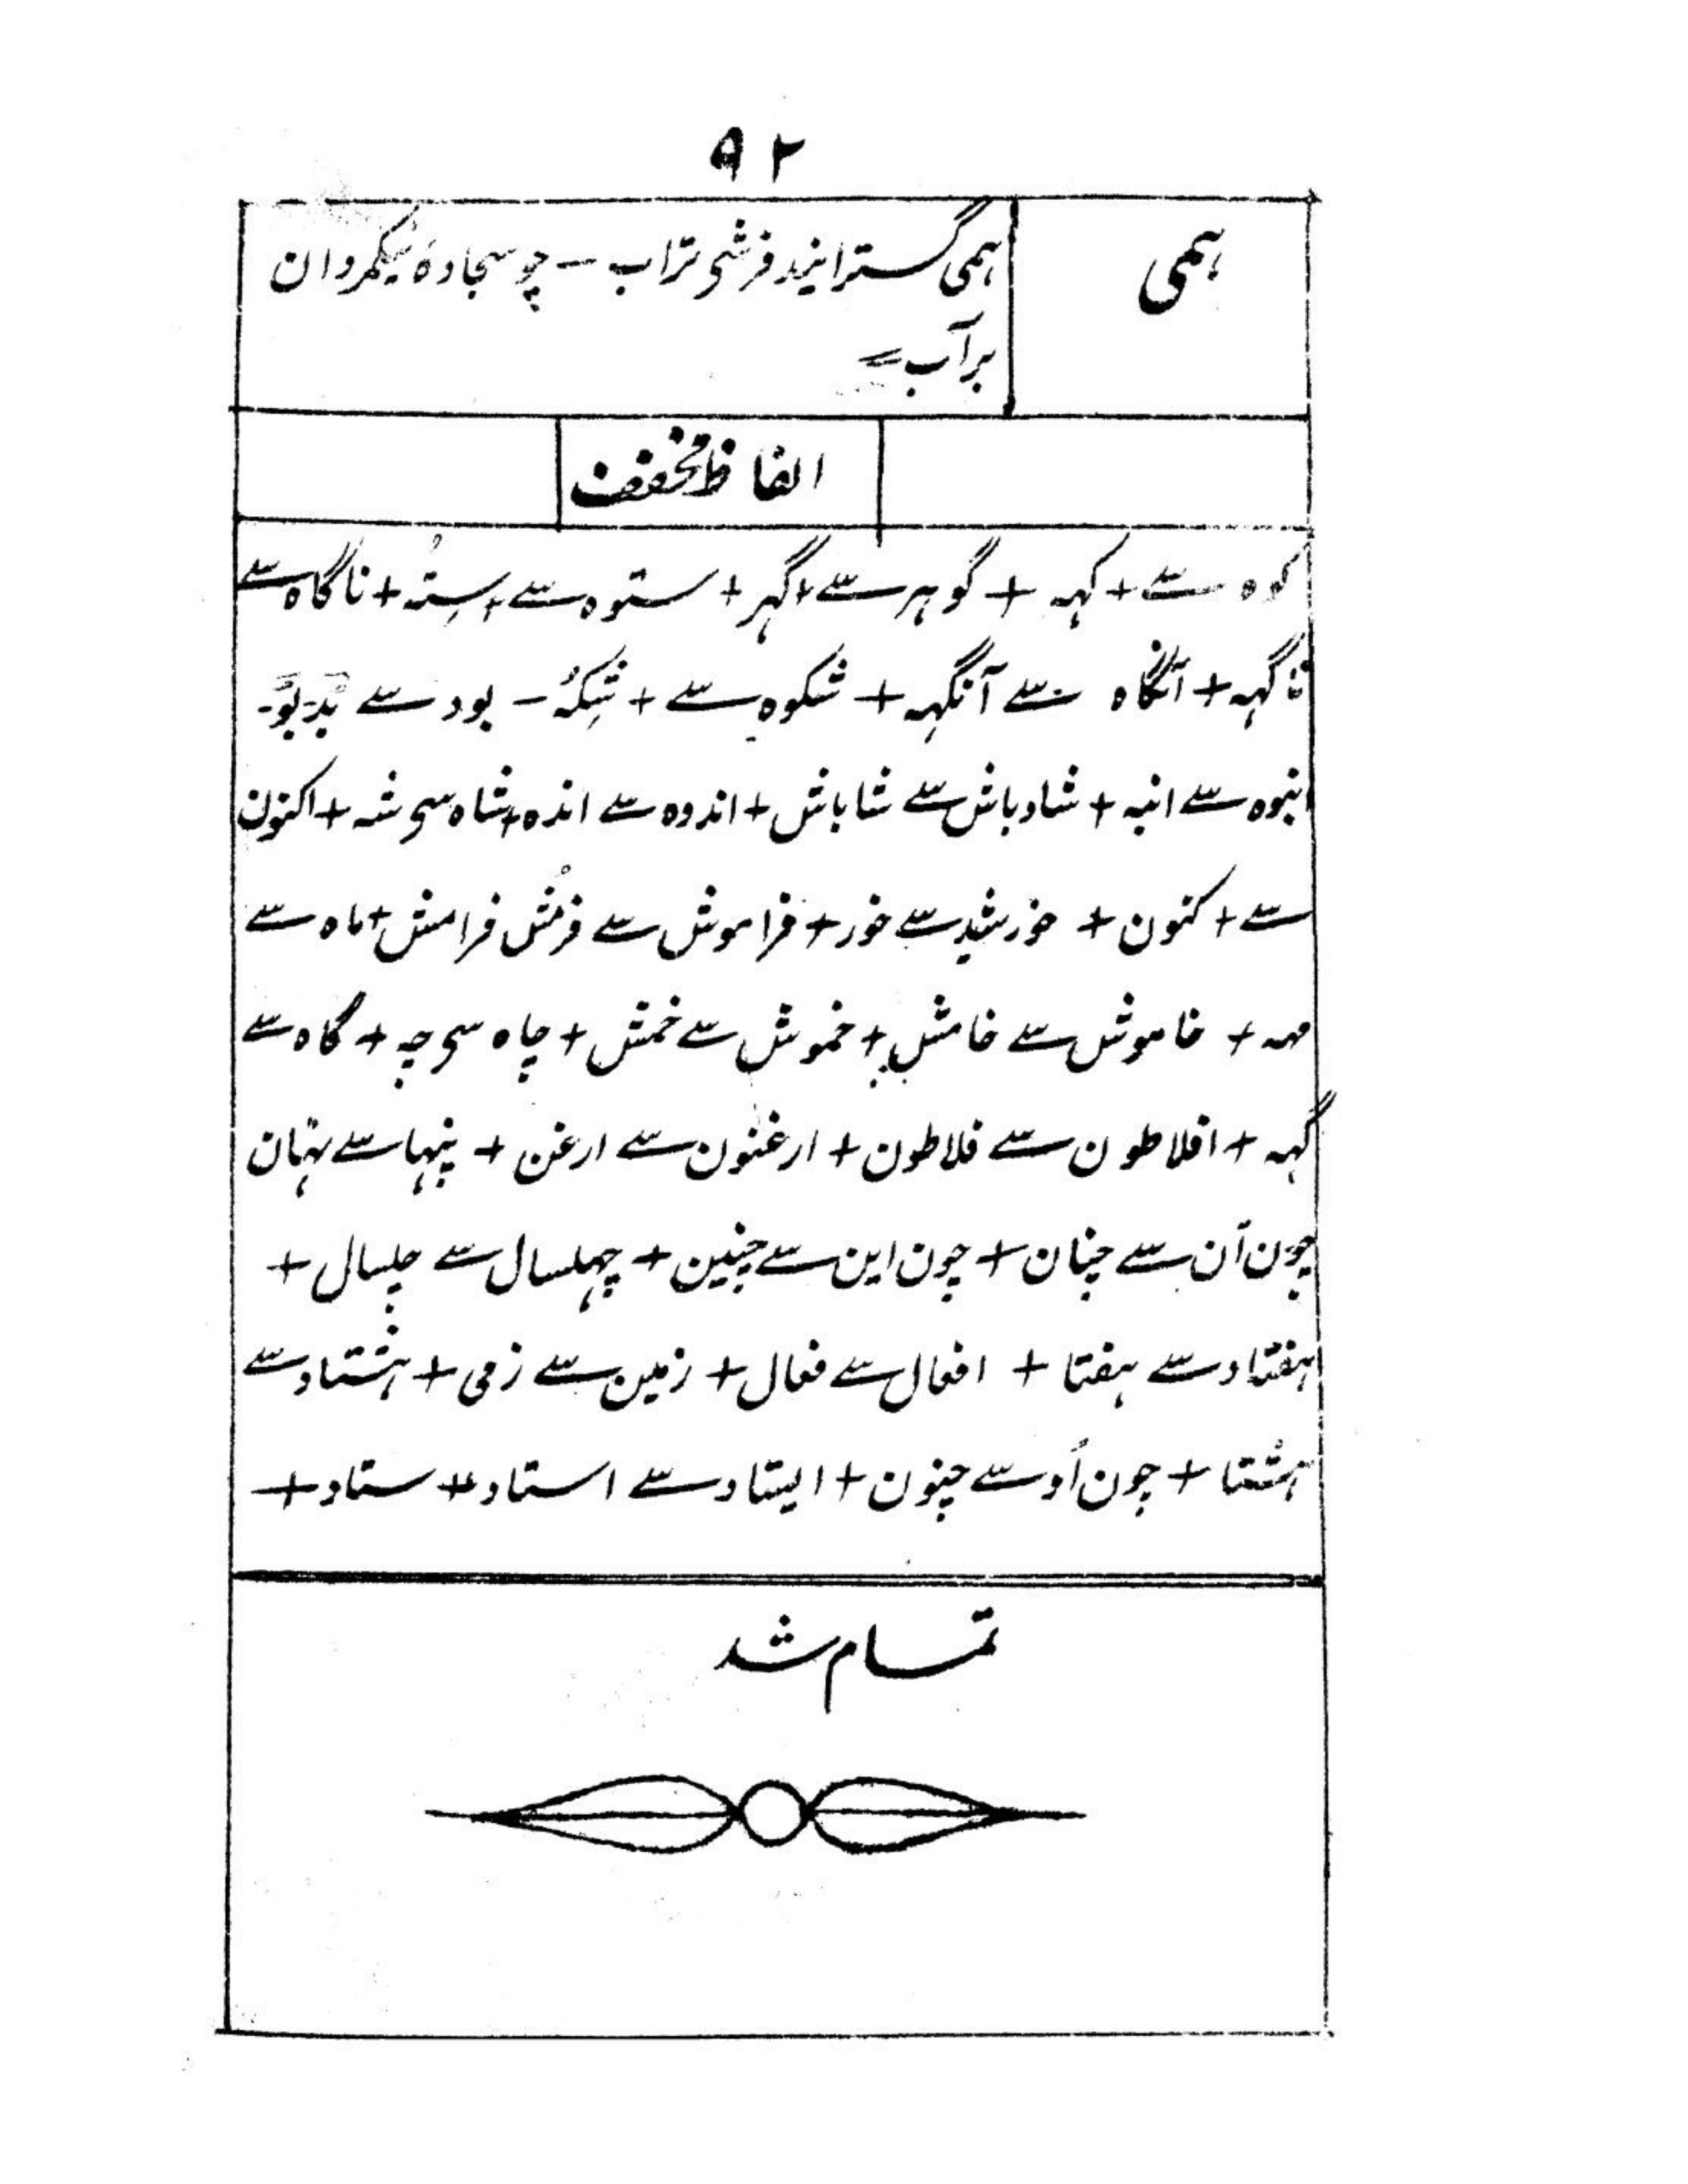 ۹۲
ہمی
ہمی گسترانید فرش تراب – چو سجادهٔ نیکمردان
بر آب =
الفاظ مخفف
کوہ سے + کہہ + گوہر سے + گہر + ستوہ سے + ستُہ + ناگاہ سے
ناگہہ + آنگاہ سے آنگہہ + شکوہ سے + شِکُہ – بود سے بُد – بُو –
انبوہ سے انبہ + شادباش سے شاباش + اندوہ سے اندہ + شاہ سی شہ + اکنون
سے + کنون + خورشید سے خور + فراموش سے فرمُش فرامش + ماہ سے
مہہ + خاموش سے خامش + خموش سے خمش + چاہ سی چہ + گاہ سے
گہہ + افلاطون سے فلاطون + ارغنون سے ارغن + پنہا سے پہان
چون آن سے چنان + چون این سے چنین + چہلسال سے چلسال +
ہفتاد سے ہفتا + افعال سے فعال + زمین سے زمی + ہشتاد سے
ہشتا + چون اُو سے چنون + ایستاد سے استاد + ستاد +
تمام شد